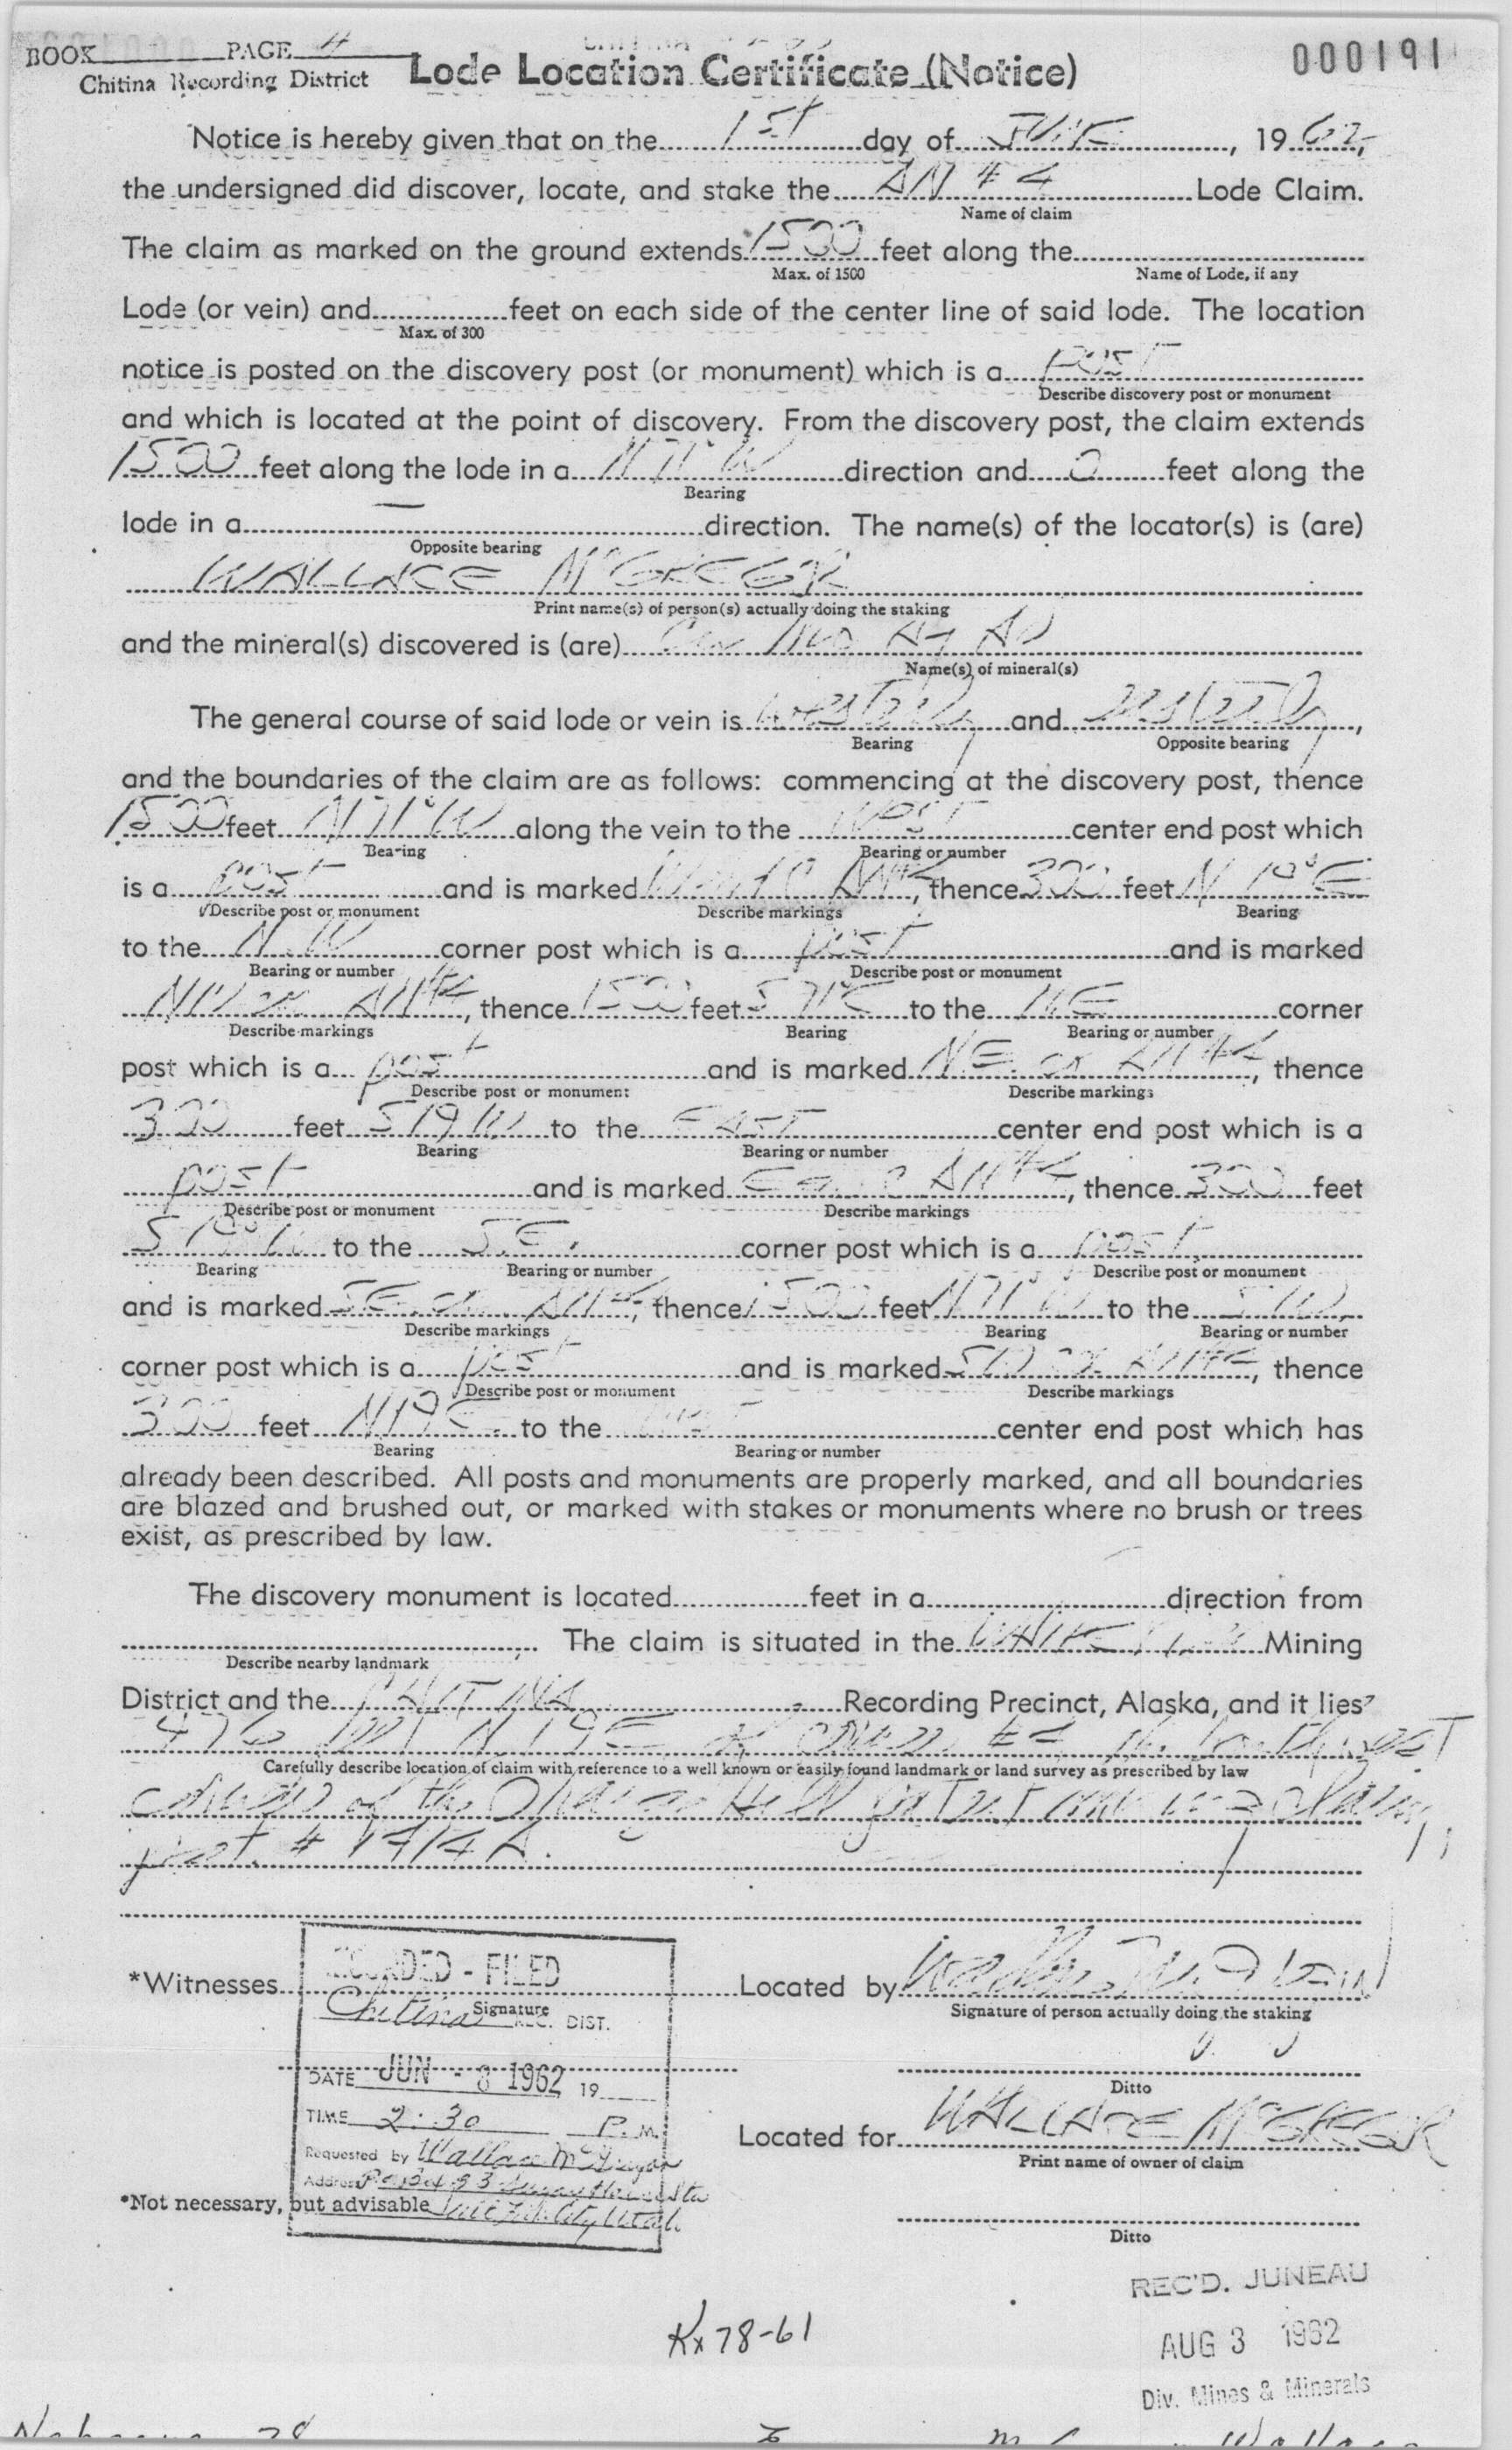 BOOK PAGE 4
Chitina Recording District
Lode Location Certificate (Notice)
000191
Notice is hereby given that on the 1st day of JUNE, 1962,
the undersigned did discover, locate, and stake the AN #4 Lode Claim.
Name of claim
The claim as marked on the ground extends 1500 feet along the
Max. of 1500 Name of Lode, if any
Lode (or vein) and feet on each side of the center line of said lode. The location
Max. of 300
notice is posted on the discovery post (or monument) which is a POST
Describe discovery post or monument
and which is located at the point of discovery. From the discovery post, the claim extends
1500 feet along the lode in a N 71° W direction and 0 feet along the
Bearing
lode in a — direction. The name(s) of the locator(s) is (are)
Opposite bearing
WALLACE McGREGOR
Print name(s) of person(s) actually doing the staking
and the mineral(s) discovered is (are) Cu Mo Ag Au
Name(s) of mineral(s)
The general course of said lode or vein is westerly and
Bearing Opposite bearing
and the boundaries of the claim are as follows: commencing at the discovery post, thence
1500 feet N 71° W along the vein to the WEST center end post which
Bearing Bearing or number
is a post and is marked AN#4, thence 300 feet N 19° E
Describe post or monument Describe markings Bearing
to the N.W corner post which is a post and is marked
Bearing or number Describe post or monument
NW cor AN#4, thence 1500 feet S 71° E to the NE corner
Describe markings Bearing Bearing or number
post which is a post and is marked N.E. cor AN#4, thence
Describe post or monument Describe markings
300 feet S 19 W to the EAST center end post which is a
Bearing Bearing or number
post and is marked AN#4, thence 300 feet
Describe post or monument Describe markings
S 19° W to the S.E. corner post which is a post
Bearing Bearing or number Describe post or monument
and is marked SE cor AN#4, thence 1500 feet N 71° W to the S.W.
Describe markings Bearing Bearing or number
corner post which is a post and is marked SW cor AN#4, thence
Describe post or monument Describe markings
300 feet N 19 E to the WEST center end post which has
Bearing Bearing or number
already been described. All posts and monuments are properly marked, and all boundaries
are blazed and brushed out, or marked with stakes or monuments where no brush or trees
exist, as prescribed by law.
The discovery monument is located feet in a direction from
The claim is situated in the WHITE Mining
Describe nearby landmark
District and the CHITINA Recording Precinct, Alaska, and it lies
N 19 E of corner #4 the
Carefully describe location of claim with reference to a well known or easily found landmark or land survey as prescribed by law
corner of the Orange Hill patent claim,
*Witnesses
Signature
Located by
Signature of person actually doing the staking
Ditto
Located for WALLACE McGREGOR
Print name of owner of claim
Ditto
RECORDED - FILED
Chitina REC. DIST.
DATE JUN - 8 1962 19
TIME 2:30 P. M.
Requested by Wallace McGregor
Address
Salt Lake City, Utah
*Not necessary, but advisable
REC'D. JUNEAU
AUG 3 1962
Div. Mines & Minerals
Kx 78-61